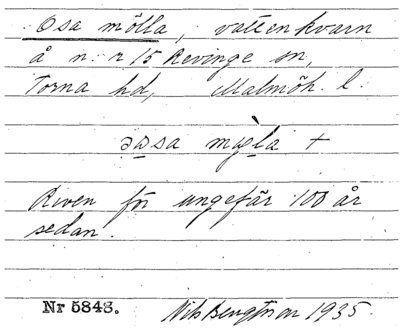 Osa mölla, vattenkvarn
å n:r 15 Revinge sn,
Torna hd, Malmöh. l.
Riven för ungefär 100 år
sedan.
Nr 5848. Nils Bengtsson 1935.